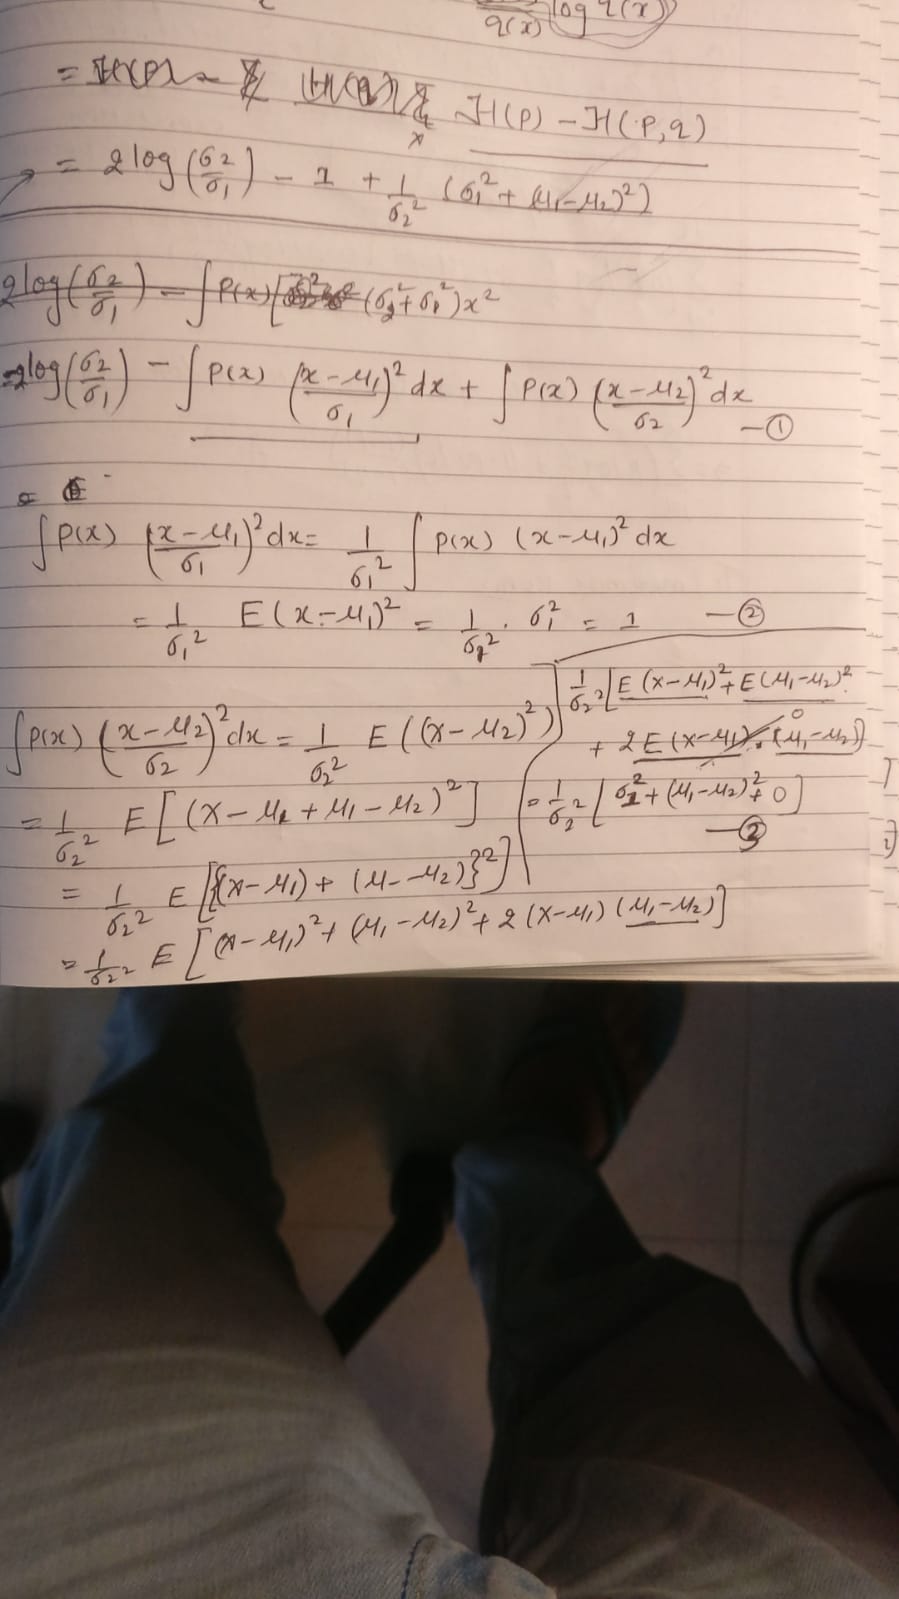 q(x) log q(x)
= H(P) - H(P,q)
= 2log(σ2/σ1) - 1 + 1/σ2² (σ1² + (μ1-μ2)²)
2log(σ2/σ1) - ∫P(x) (σ2²+σ1²)x²
= 2log(σ2/σ1) - ∫P(x) (x-μ1/σ1)² dx + ∫P(x) (x-μ2/σ2)² dx —①
∫P(x) (x-μ1/σ1)² dx = 1/σ1² ∫P(x) (x-μ1)² dx
= 1/σ1² E(x-μ1)² = 1/σ1² · σ1² = 1 —②
∫P(x) (x-μ2/σ2)² dx = 1/σ2² E((x-μ2)²)
= 1/σ2² E[(X-μ1+μ1-μ2)²]
= 1/σ2² E[{(x-μ1)+(μ-μ2)}²]
= 1/σ2² E[(x-μ1)²+(μ1-μ2)²+2(X-μ1)(μ1-μ2)]
1/σ2² [E(x-μ1)²+E(μ1-μ2)²
+ 2E(x-μ1)·(μ1-μ2)] 0
= 1/σ2² [σ1²+(μ1-μ2)²+0]
—③